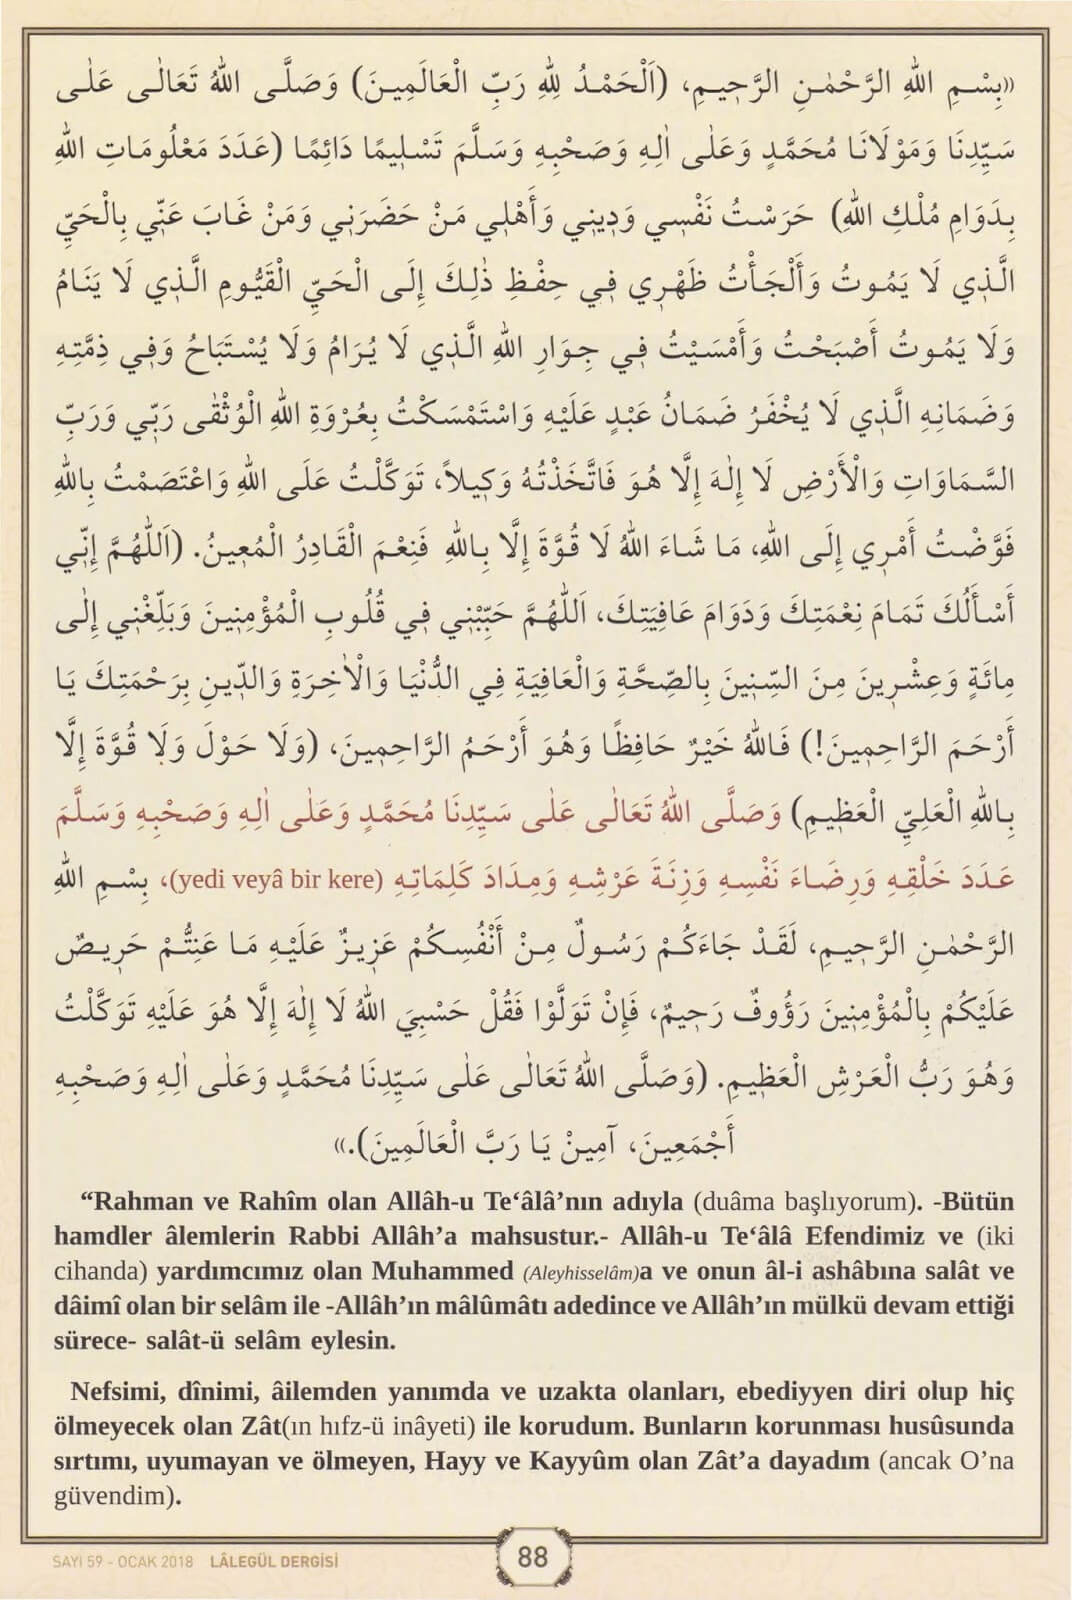 «بِسْمِ اللهِ الرَّحْمٰنِ الرَّحِيمِ، (اَلْحَمْدُ لِلهِ رَبِّ الْعَالَمِينَ) وَصَلَّى اللهُ تَعَالٰى عَلٰى
سَيِّدِنَا وَمَوْلَانَا مُحَمَّدٍ وَعَلٰى اٰلِهِ وَصَحْبِهِ وَسَلَّمَ تَسْلِيمًا دَائِمًا (عَدَدَ مَعْلُومَاتِ اللهِ
بِدَوَامِ مُلْكِ اللهِ) حَرَسْتُ نَفْسِي وَدِينِي وَأَهْلِي مَنْ حَضَرَنِي وَمَنْ غَابَ عَنِّي بِالْحَيِّ
الَّذِي لَا يَمُوتُ وَأَلْجَأْتُ ظَهْرِي فِي حِفْظِ ذٰلِكَ إِلَى الْحَيِّ الْقَيُّومِ الَّذِي لَا يَنَامُ
وَلَا يَمُوتُ أَصْبَحْتُ وَأَمْسَيْتُ فِي جِوَارِ اللهِ الَّذِي لَا يُرَامُ وَلَا يُسْتَبَاحُ وَفِي ذِمَّتِهِ
وَضَمَانِهِ الَّذِي لَا يُخْفَرُ ضَمَانُ عَبْدٍ عَلَيْهِ وَاسْتَمْسَكْتُ بِعُرْوَةِ اللهِ الْوُثْقٰى رَبِّي وَرَبِّ
السَّمَاوَاتِ وَالْأَرْضِ لَا إِلٰهَ إِلَّا هُوَ فَاتَّخَذْتُهُ وَكِيلاً، تَوَكَّلْتُ عَلَى اللهِ وَاعْتَصَمْتُ بِاللهِ
فَوَّضْتُ أَمْرِي إِلَى اللهِ، مَا شَاءَ اللهُ لَا قُوَّةَ إِلَّا بِاللهِ فَنِعْمَ الْقَادِرُ الْمُعِينُ. (اَللّٰهُمَّ إِنِّي
أَسْأَلُكَ تَمَامَ نِعْمَتِكَ وَدَوَامَ عَافِيَتِكَ، اَللّٰهُمَّ حَبِّبْنِي فِي قُلُوبِ الْمُؤْمِنِينَ وَبَلِّغْنِي إِلٰى
مِائَةٍ وَعِشْرِينَ مِنَ السِّنِينَ بِالصِّحَّةِ وَالْعَافِيَةِ فِي الدُّنْيَا وَالْاٰخِرَةِ وَالدِّينِ بِرَحْمَتِكَ يَا
أَرْحَمَ الرَّاحِمِينَ!) فَاللهُ خَيْرٌ حَافِظًا وَهُوَ أَرْحَمُ الرَّاحِمِينَ، (وَلَا حَوْلَ وَلَا قُوَّةَ إِلَّا
بِاللهِ الْعَلِيِّ الْعَظِيمِ) وَصَلَّى اللهُ تَعَالٰى عَلٰى سَيِّدِنَا مُحَمَّدٍ وَعَلٰى اٰلِهِ وَصَحْبِهِ وَسَلَّمَ
عَدَدَ خَلْقِهِ وَرِضَاءَ نَفْسِهِ وَزِنَةَ عَرْشِهِ وَمِدَادَ كَلِمَاتِهِ (yedi veyâ bir kere)، بِسْمِ اللهِ
الرَّحْمٰنِ الرَّحِيمِ، لَقَدْ جَاءَكُمْ رَسُولٌ مِنْ أَنْفُسِكُمْ عَزِيزٌ عَلَيْهِ مَا عَنِتُّمْ حَرِيصٌ
عَلَيْكُمْ بِالْمُؤْمِنِينَ رَؤُوفٌ رَحِيمٌ، فَإِنْ تَوَلَّوْا فَقُلْ حَسْبِيَ اللهُ لَا إِلٰهَ إِلَّا هُوَ عَلَيْهِ تَوَكَّلْتُ
وَهُوَ رَبُّ الْعَرْشِ الْعَظِيمِ. (وَصَلَّى اللهُ تَعَالٰى عَلٰى سَيِّدِنَا مُحَمَّدٍ وَعَلٰى اٰلِهِ وَصَحْبِهِ
أَجْمَعِينَ، آمِينْ يَا رَبَّ الْعَالَمِينَ).»
“Rahman ve Rahîm olan Allâh-u Te‘âlâ’nın adıyla (duâma başlıyorum). -Bütün
hamdler âlemlerin Rabbi Allâh’a mahsustur.- Allâh-u Te‘âlâ Efendimiz ve (iki
cihanda) yardımcımız olan Muhammed (Aleyhisselâm)a ve onun âl-i ashâbına salât ve
dâimî olan bir selâm ile -Allâh’ın mâlûmâtı adedince ve Allâh’ın mülkü devam ettiği
sürece- salât-ü selâm eylesin.
Nefsimi, dînimi, âilemden yanımda ve uzakta olanları, ebediyyen diri olup hiç
ölmeyecek olan Zât(ın hıfz-ü inâyeti) ile korudum. Bunların korunması husûsunda
sırtımı, uyumayan ve ölmeyen, Hayy ve Kayyûm olan Zât’a dayadım (ancak O’na
güvendim).
SAYI 59 - OCAK 2018 LÂLEGÜL DERGİSİ
88